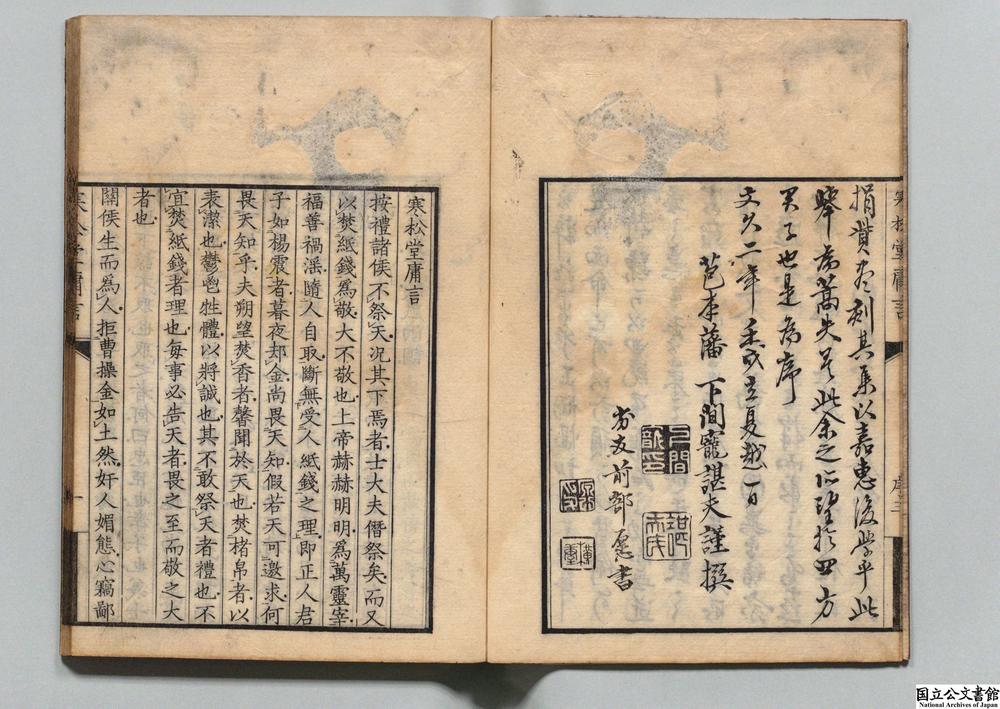 捐貲者刻其集以嘉惠後學乎此
舉為嚆矢是此余之所望於四方
君子也是為序
文久二年壬戌立夏越一日
芭本藩 下間寵諶夫謹撰
労友前部 書
寒松堂庸言
序三
寒松堂庸言
按禮諸侯不祭天況其下焉者士大夫僭祭矣而又
以焚紙錢為敬大不敬也上帝赫赫明明為萬靈宰
福善禍淫隨人自取斷無受人紙錢之理即正人君
子如楊震者暮夜却金尚畏天知假若天可邀求何
畏天知乎夫朔望焚香者馨聞於天也焚楮帛者以
表潔也鬱鬯牲體以將誠也其不敢祭天者禮也不
宜焚紙錢者理也每事必告天者畏之至而敬之大
者也
關侯生而為人拒曹操金如土然奸人媚態心竊鄙
寒松堂庸言
一
国立公文書館
National Archives of Japan